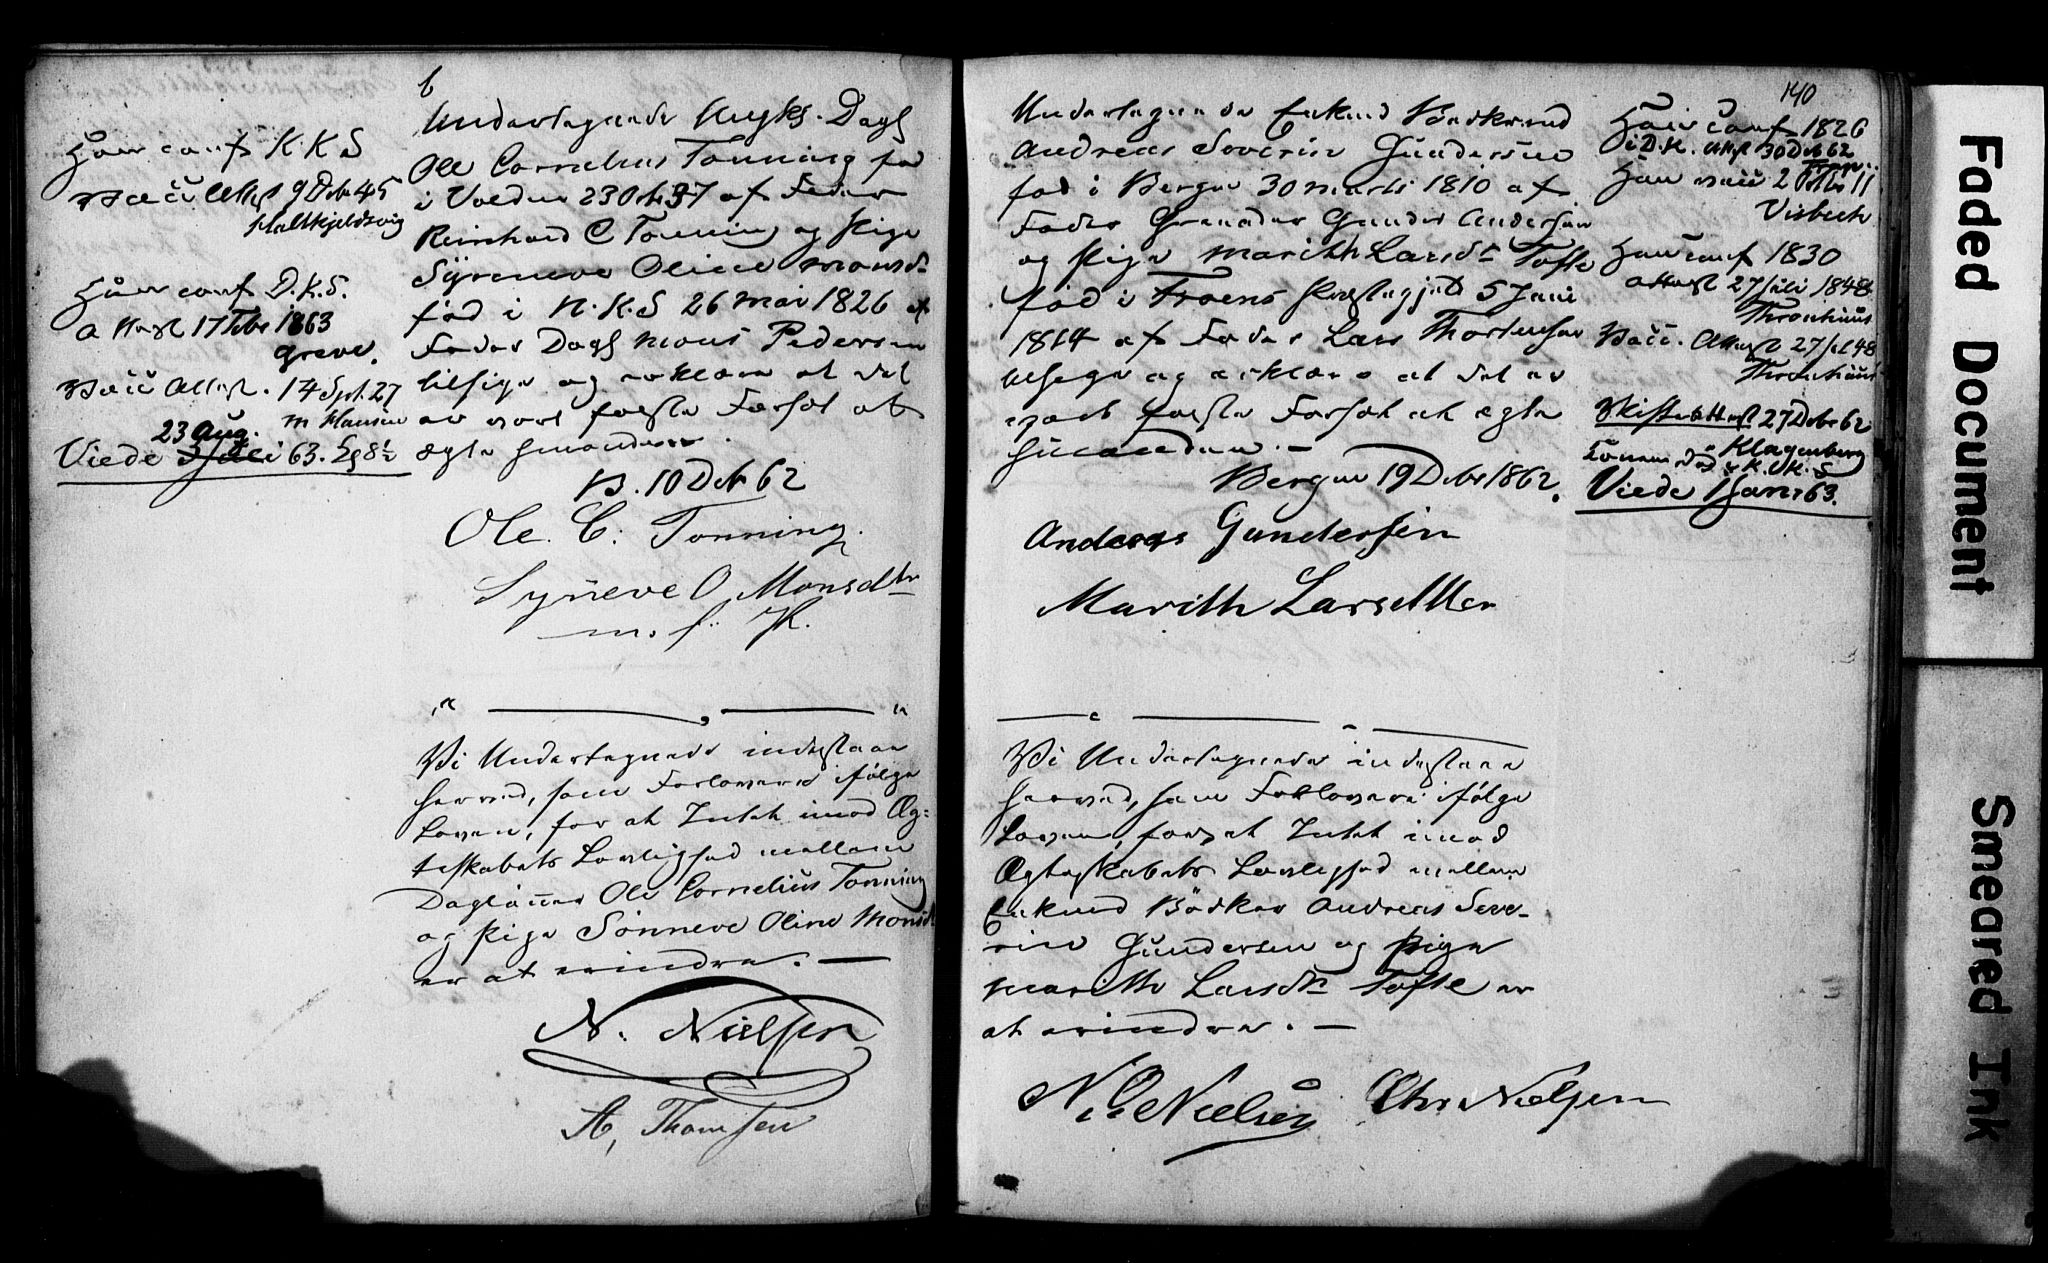 Undertegnede Ungks. Dagl
Ole Cornelius Tonning fød
i Volden 23 Oct 37 af Fader
Reinhard C Tonning og Pige
Syneve Oline Monsd
fød i N.K.S 26 Mai 1826 af
Fader Dagl Mons Pedersen
tilsige og erklære at det
er vort faste Forsæt at
ægte hinanden.
B. 10 Debr 62
Ole. C: Tonning.
Syneve O Monsdtr
m. f: P.
Han conf K.K.S
vacc Attest 9 Debr 45
Hun conf D.K.S.
Attest 17 Febr 1863
Greve.
Vacc Attest. 14 Sept. 27
m Hansen
23 Aug.
Viede i 63. Kl 8½
Vi Undertegnede indestaae
herved, som Forlovere ifølge
Loven, for at Intet imod Æg=
teskabets Lovlighed mellem
Daglønner Ole Cornelius Tonning
og Pige Sønneve Oline Monsd
er at erindre. —
N. Nielsen
A, Thomsen
140
Undertegnede Enkmd Bødkersvd
Andreas Severin Gundersen
fød i Bergen 30 Marts 1810 af
Fader Grenader Gunder Andersen
og Pige Marith Larsdr Tofte
fød i Froens Præstegjeld 5 Juni
1814 af Fader Lars Thorstensen
tilsige og erklære at det er
vort faste Forsæt at ægte
hinanden. —
Bergen 19 Debr 1862.
Andreas Gundersen
Marith Larsdtter
Han conf 1826
i D.K. Attest 30 Debr 62
Han vacc 2 11
Visbech
Hun conf 1830
Attest 27 Juli 1848
Thronhuus
Vacc. Attest 27 Juli 48
Thronhuus
Skifteattest 27 Debr 62
Klagenberg
Viede 1 Janr 63.
Vi Undertegnede indestaae
herved, som Forlovere ifølge
Loven, for at Intet imod
Ægteskabets Lovlighed mellem
Enkmd Bødker Andreas Seve-
rin Gundersen og Pige
Marith Larsdr Tofte er
at erindre. —
N. O Nielsen Chr Nielsen
Faded Document
Smeared Ink